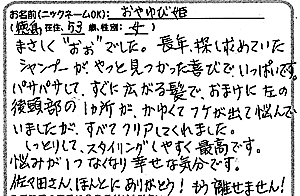 お名前(ニックネームOK): おやゆび姫
(徳島在住, 53歳, 性別: 女)
まさしく"おぉ"でした。長年、探し求めていた
シャンプーが、やっと見つかった喜びで、いっぱいです。
パサパサして、すぐに広がる髪で、おまけに左の
後頭部の1ヶ所が、かゆくてフケが出て悩んで
いましたが、すべてクリアしてくれました。
しっとりして、スタイリングしやすく最高です。
悩みが1つなくなり幸せな気分です。
佐々田さん、ほんとにありがとう! もう離せません!